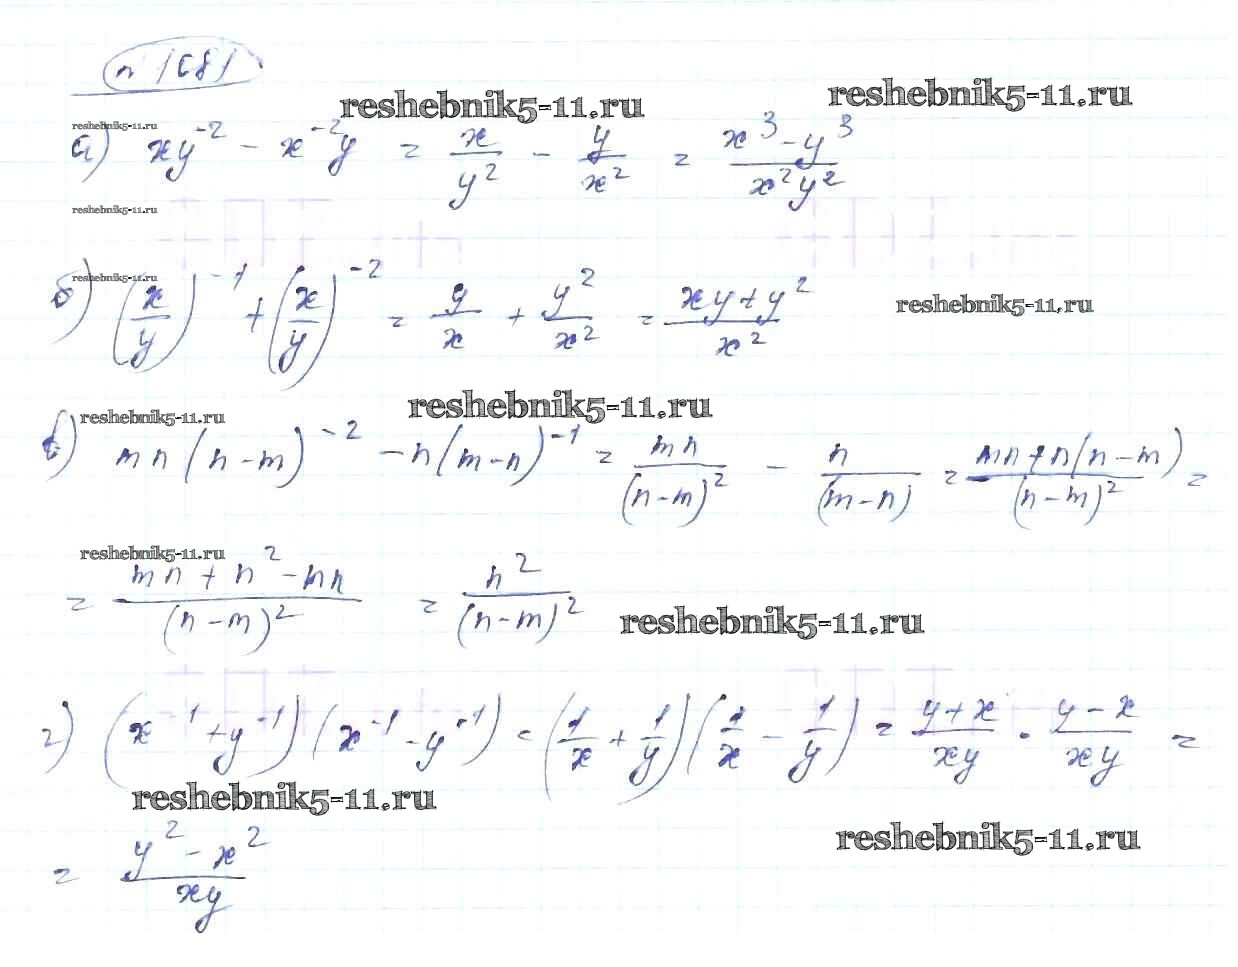 n 1081
reshebnik5-11.ru
reshebnik5-11.ru
reshebnik5-11.ru
а) xy⁻² - x⁻²y = x/y² - y/x² = (x³-y³)/(x²y²)
reshebnik5-11.ru
reshebnik5-11.ru
б) (x/y)⁻¹ + (x/y)⁻² = y/x + y²/x² = (xy+y²)/x²
reshebnik5-11.ru
reshebnik5-11.ru
reshebnik5-11.ru
в) mn(n-m)⁻² - n(m-n)⁻¹ = mn/(n-m)² - n/(m-n) = (mn+n(n-m))/(n-m)² =
reshebnik5-11.ru
= (mn+n²-mn)/(n-m)² = n²/(n-m)²
reshebnik5-11.ru
г) (x⁻¹+y⁻¹)(x⁻¹-y⁻¹) = (1/x + 1/y)(1/x - 1/y) = (y+x)/(xy) · (y-x)/(xy) =
reshebnik5-11.ru
reshebnik5-11.ru
= (y²-x²)/(xy)